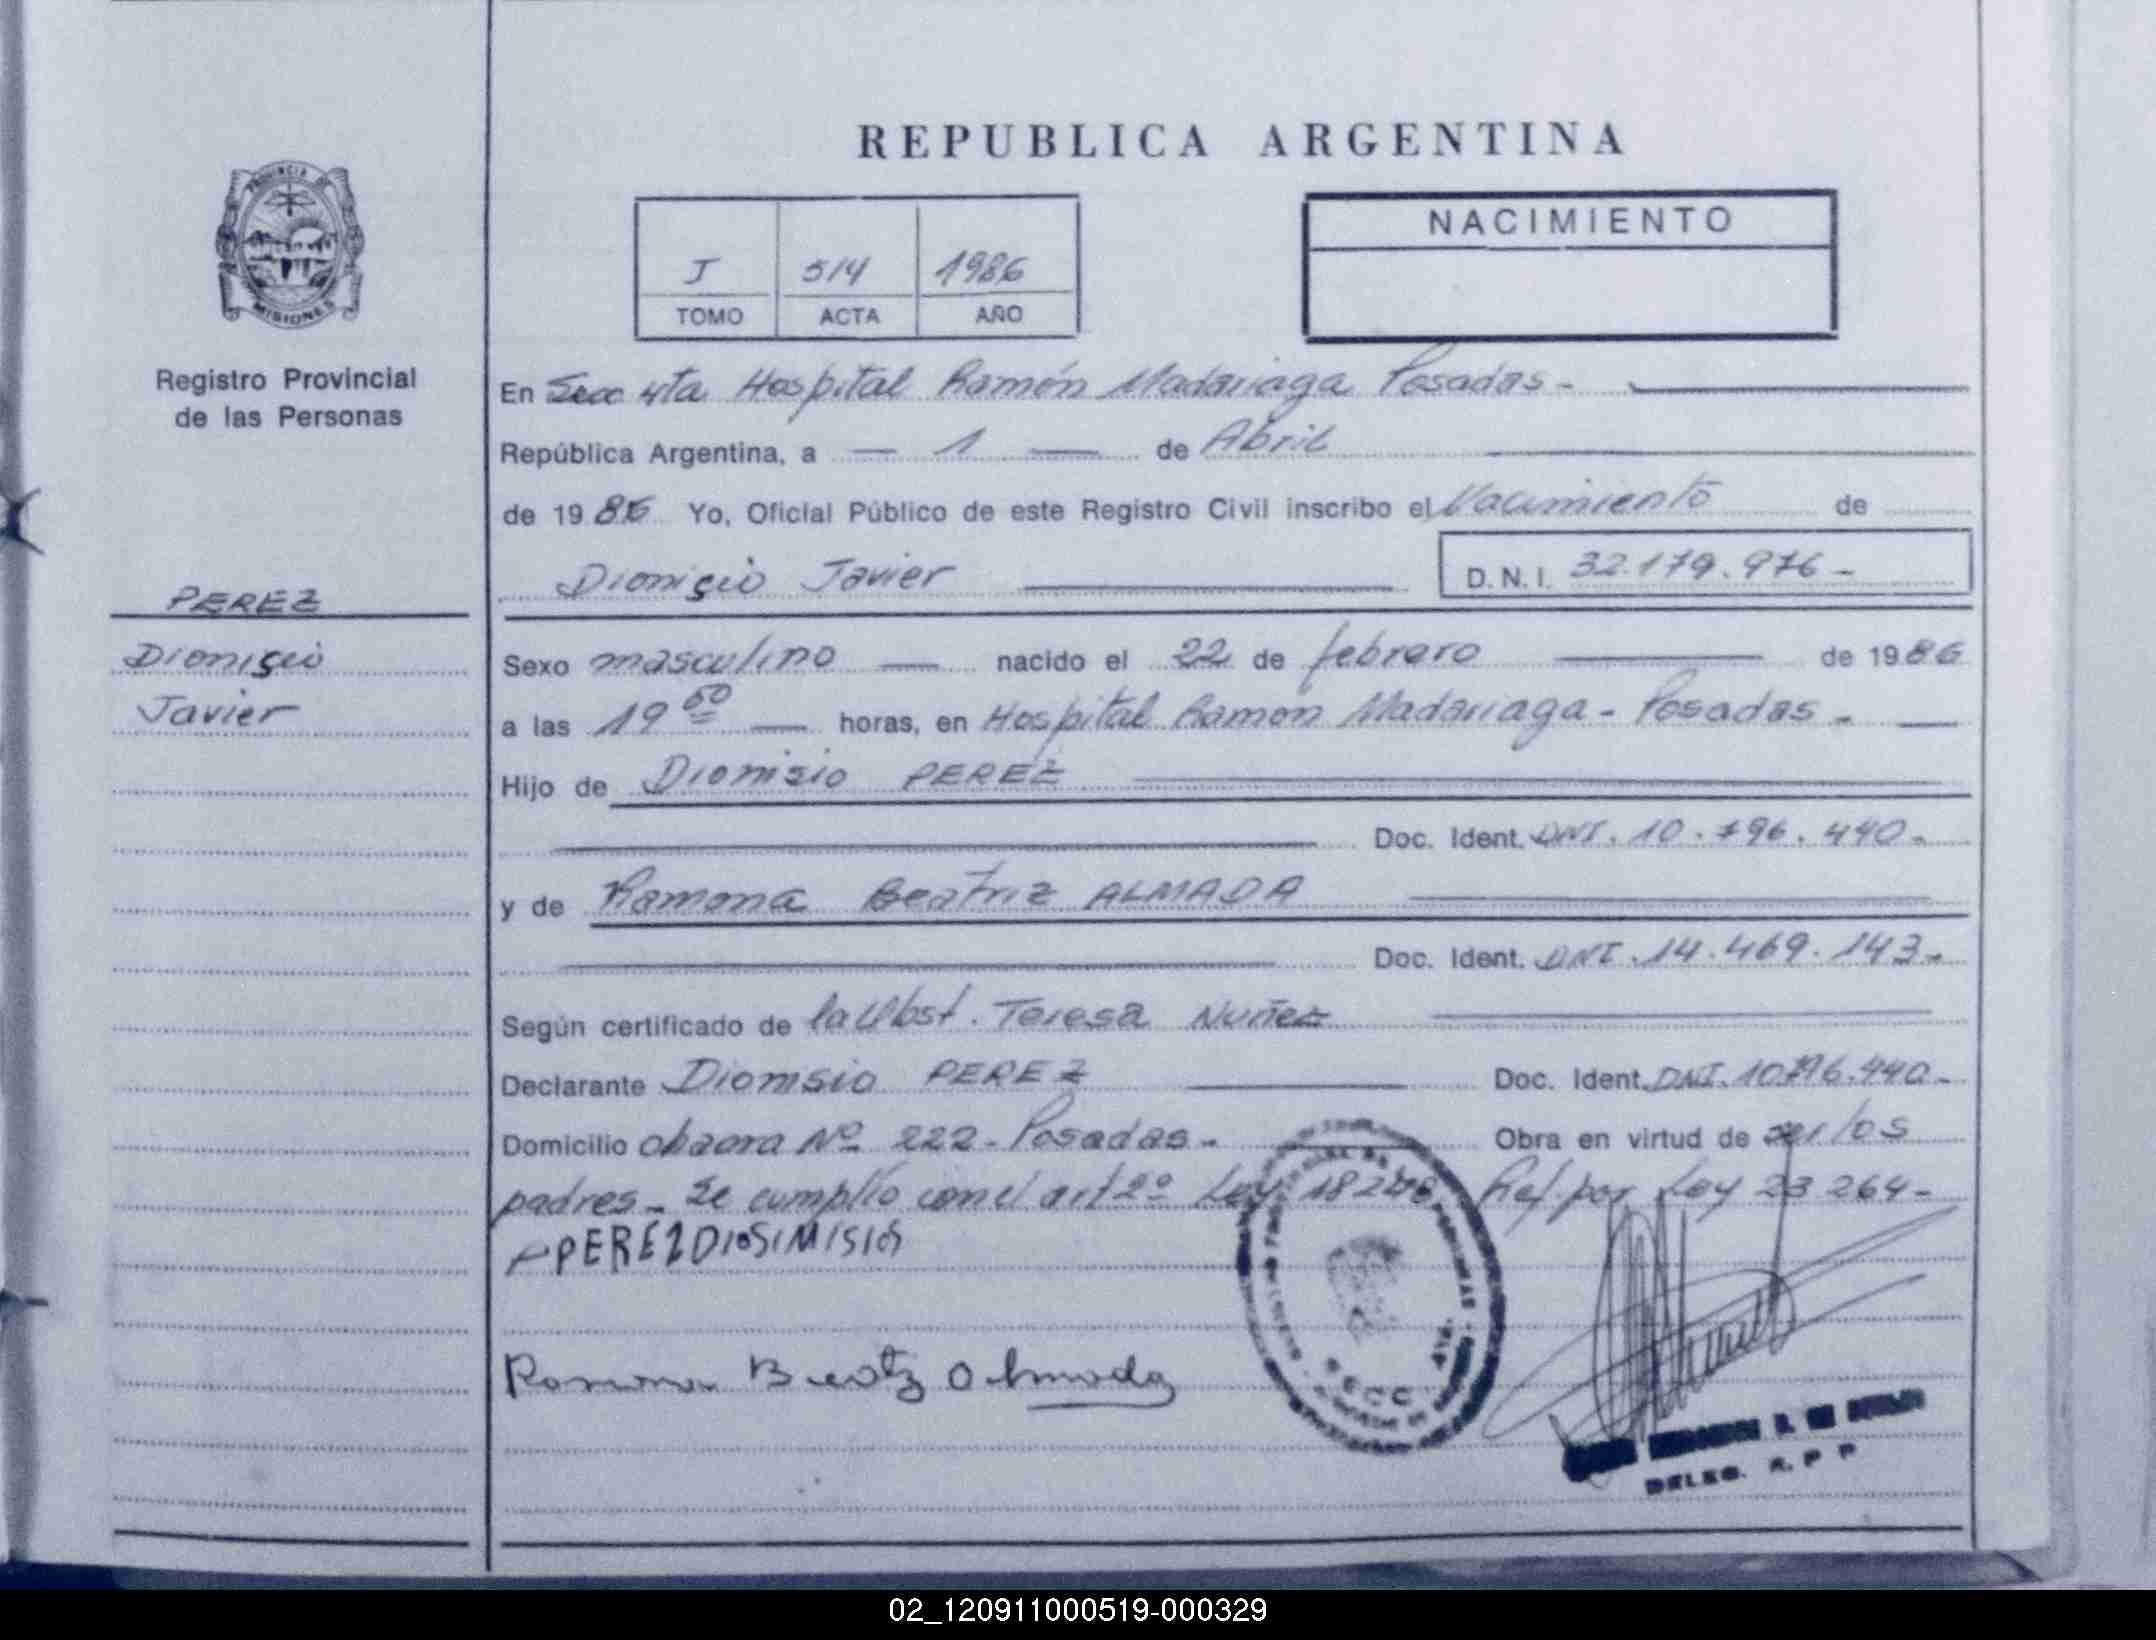 REPUBLICA ARGENTINA
PROVINCIA DE
MISIONES
Registro Provincial
de las Personas
J 514 1986
TOMO ACTA AÑO
NACIMIENTO
En Secc 4ta Hospital Ramón Madariaga Posadas-
República Argentina, a — 1 — de Abril
de 1986 Yo, Oficial Público de este Registro Civil inscribo el Nacimiento de
Dionisio Javier D.N.I. 32.179.976-
PEREZ
Dionisio
Javier
Sexo masculino — nacido el 22 de febrero de 1986
a las 19 50 — horas, en Hospital Ramon Madariaga - Posadas -
Hijo de Dionisio PEREZ
Doc. Ident. DNI. 10.796.440-
y de Ramona Beatriz ALMADA
Doc. Ident. DNI. 14.469.143-
Según certificado de la Obst. Teresa Nuñez
Declarante Dionisio PEREZ Doc. Ident. DNI. 10.796.440-
Domicilio Nº 222 - Posadas - Obra en virtud de ser los
padres - Se cumplio con el art 2º Ley 18248 Ref por Ley 23264-
PEREZ DIOSIMISIOS
Ramona Beatz Almada
SECC. 4TA.
DELEG. R. P P
02_120911000519-000329